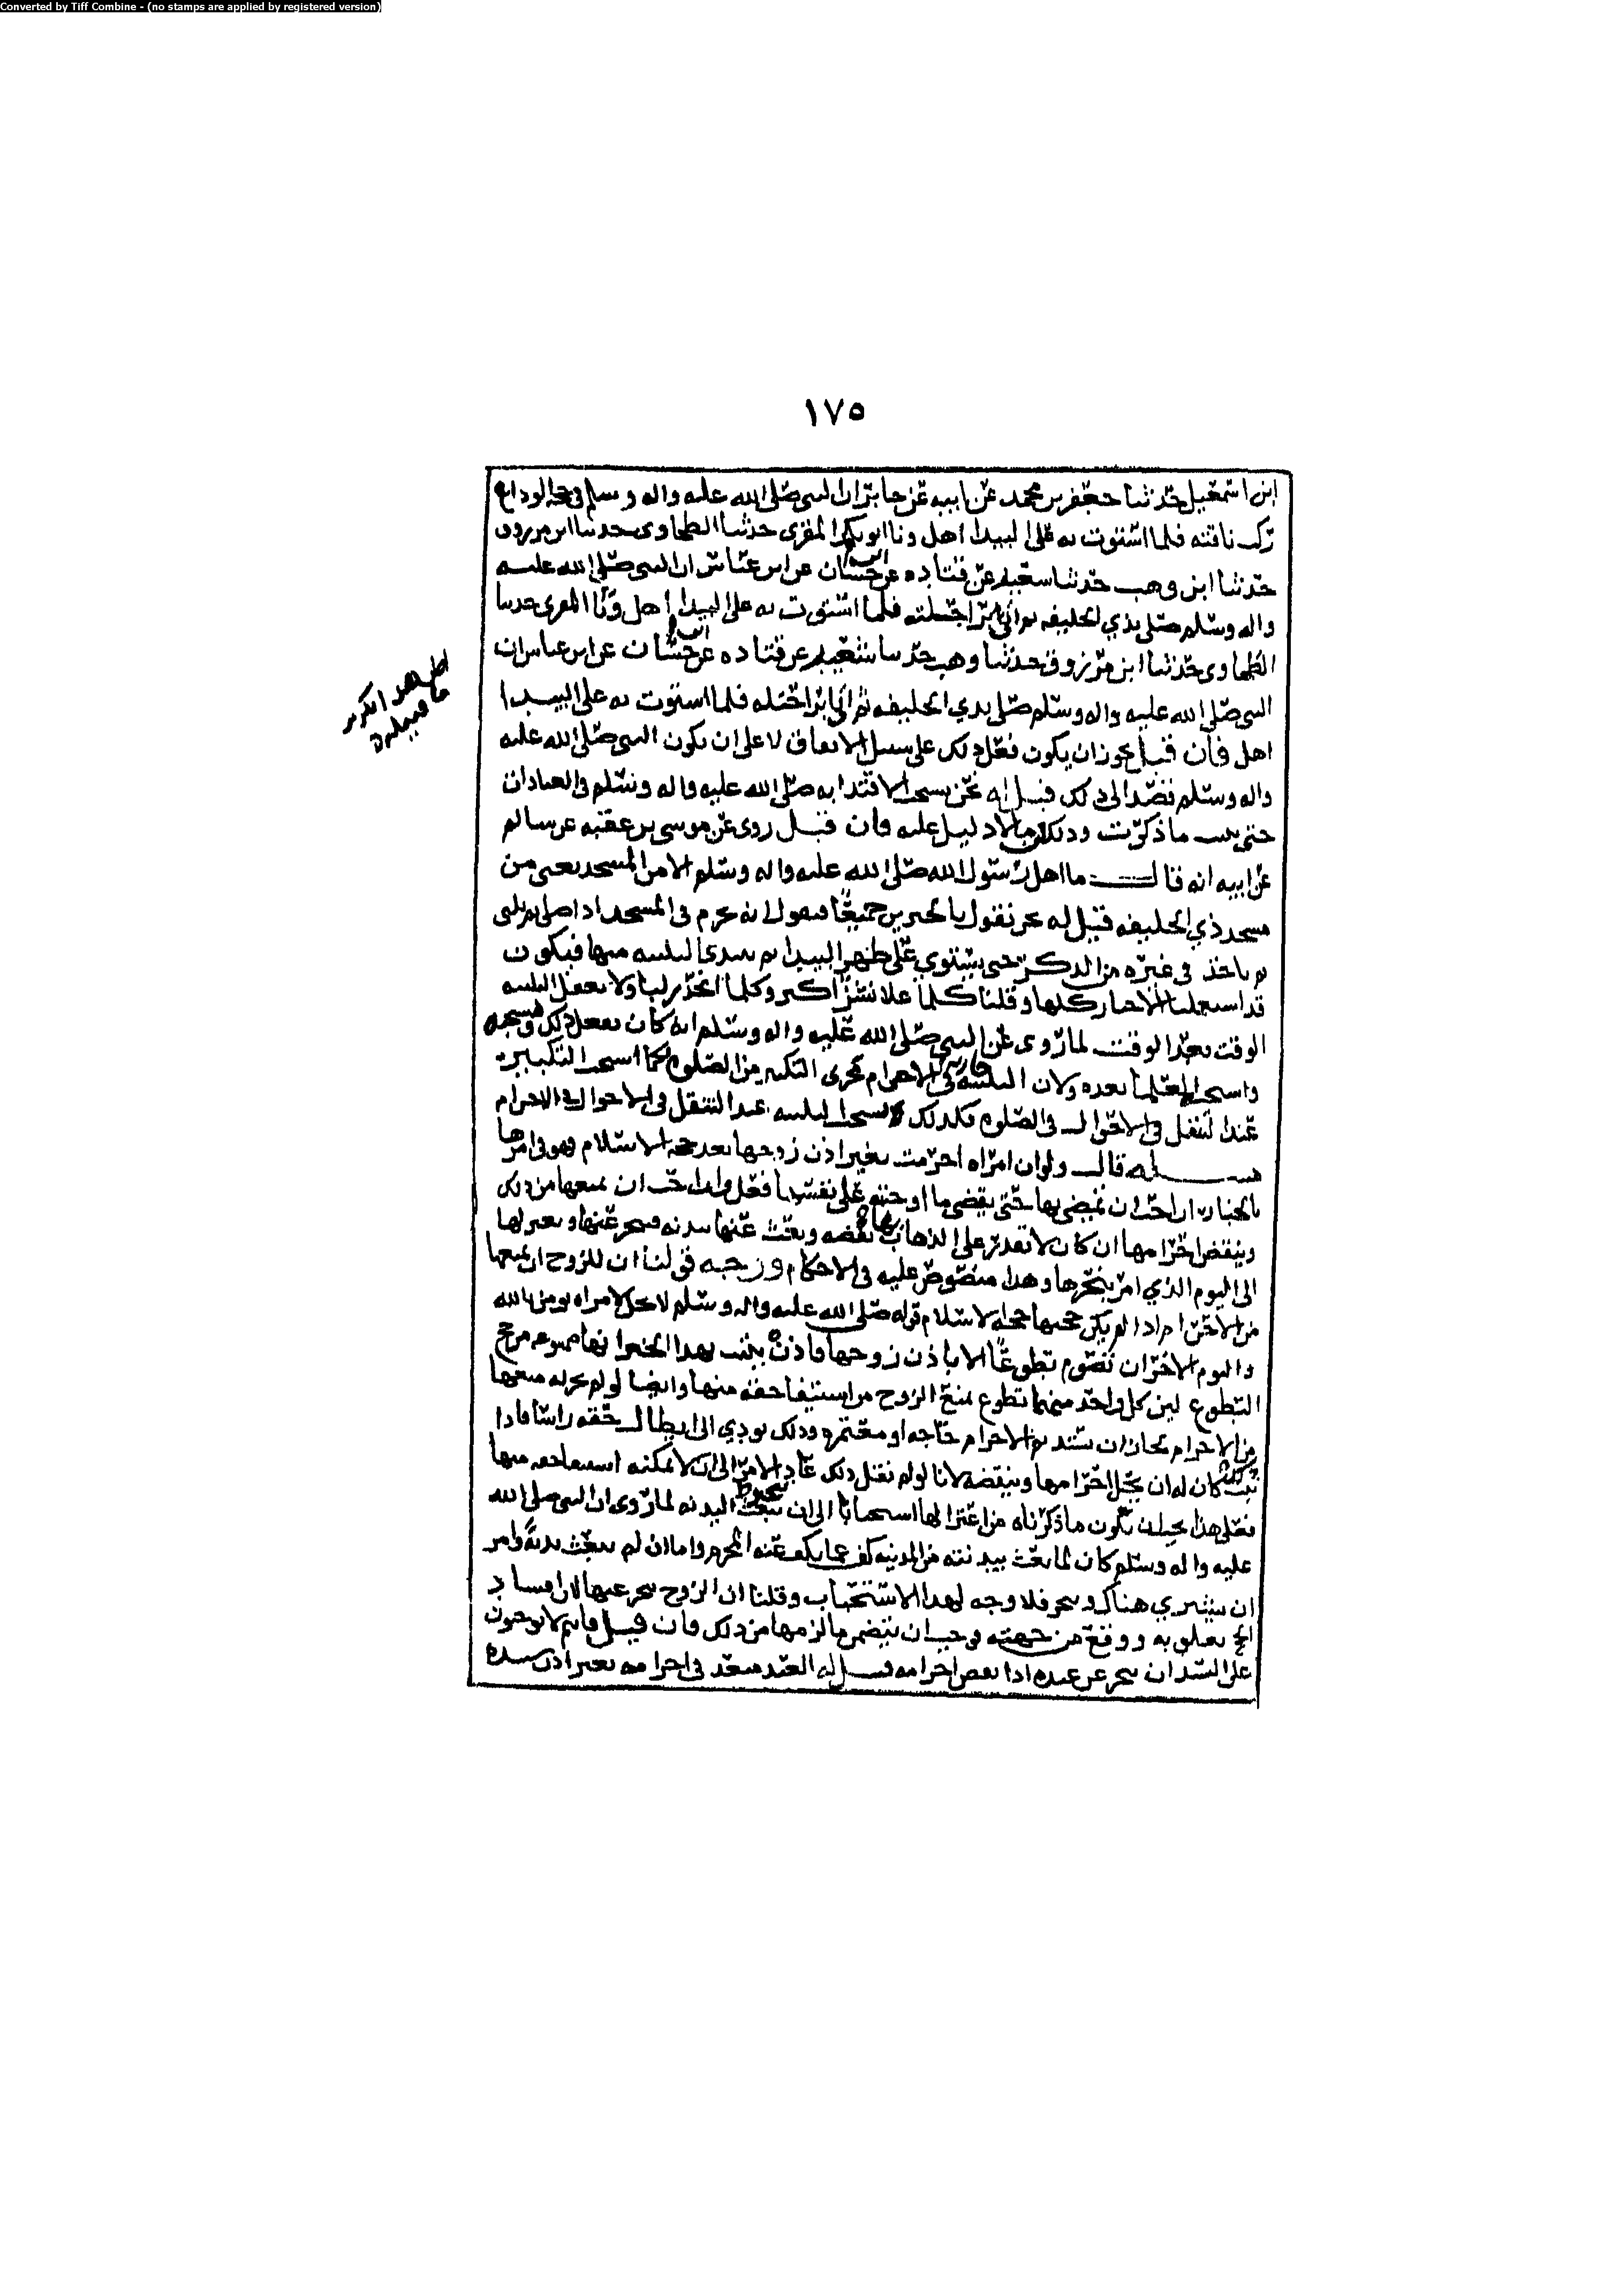 Converted by Tiff Combine - (no stamps are applied by registered version)
١٧٥
ابن اسمعيل حدثنا جعفر بن محمد عن ابيه عن جابر ان النبي صلى الله عليه واله وسلم في حجة الوداع
ركب ناقته فلما استوت به على البيدا اهل ونا ابو بكر المقري حدثنا الطحاوي حدثنا ابن مرزوق
حدثنا ابن وهب حدثنا شعبه عن قتاده عن ابي حسان عن ابن عباس ان النبي صلى الله عليه
واله وسلم صلى بذي الحليفه ثم اتي براحلته فلما استوت به على البيدا اهل ونا المقري حدثنا
الطحاوي حدثنا ابن مرزوق حدثنا وهب حدثنا شعبه عن قتاده عن ابي حسان عن ابن عباس ان
النبي صلى الله عليه واله وسلم صلى بذي الحليفه ثم اتي براحلته فلما استوت به على البيدا
اهل فان قيل يجوز ان يكون فعل ذلك على سبيل الاتفاق لا على ان يكون النبي صلى الله عليه
واله وسلم قصد الى ذلك قيل له نحن يستحب الاقتدا به صلى الله عليه واله وسلم في العبادات
حتى يثبت ما ذكرت وذلك مما لا دليل عليه فان قيل روي عن موسى بن عقبه عن سالم
عن ابيه انه قال ما اهل رسول الله صلى الله عليه واله وسلم الا من المسجد يعني من
مسجد ذي الحليفه قيل له نحن نقول بالخبرين جميعًا فنقول انه يحرم في المسجد اذا صلى ثم يلبي
ثم ياخذ في غيره من الذكر حتى يستوي على ظهر البيدا ثم يبتدي التلبيه منها فيكون
قد استعملنا الاخبار كلها وقلنا كلما علا نشزًا كبر وكلما انحدر لبا ولا يغفل التلبيه
الوقت بعد الوقت لما روي عن النبي صلى الله عليه واله وسلم انه كان يفعل ذلك
واستحب العلما بعده ولان التلبيه جاريه في الاحرام مجرى التكبير من الصلوه فكما استحب التكبير
عند التنقل في الاحوال في الصلوه فكذلك يستحب التلبيه عند التنقل في الاحوال في الاحرام
مسئله قال ولو ان امراه احرمت بغير اذن زوجها بعد حجة الاسلام فهو في امرها
بالخيار ان احب ان يمضي بها حتى يقضي ما اوجبته على نفسها فعل وان احب ان يمنعها من ذلك
وينقض احرامها ان كان لا يقدر على الذهاب بها نقضه وبعث عنها ببدنه فينحر عنها ويعتزلها
الى اليوم الذي امر بنحرها وهذا منصوص عليه في الاحكام وجه قولنا ان للزوج ان يمنعها
من الاحرام اذا لم يكن حجها حجة الاسلام قوله صلى الله عليه واله وسلم لا يحل لامراه تومن بالله
واليوم الاخر ان تصوم تطوعًا الا باذن زوجها فاذن يثبت بهذا الخبر انها ممنوعه من حج
التطوع لان كل واحد منهما تطوع يمنع الزوج من استيفا حقه منها وايضا لو لم يجز له منعها
من الاحرام لجاز ان تستديم الاحرام حاجه او معتمره وذلك يودي الى ابطال حقه راسًا فاذا
ثبت ذلك كان له ان يحل احرامها وينقضه لانا لو لم نقل ذلك عاد الامر الى ان لا يمكنه استيفا حقه منها
فعلى هذا يجب ان يكون ما ذكرناه من اعتزالها استحبابًا الى ان تنحر البدنه لما روي ان النبي صلى الله
عليه واله وسلم كان لما بعث ببدنته من المدينه كف عما يكف عنه المحرم واما ان لم يبعث بدنه وامر
ان يشتري هناك وينحر فلا وجه لهذا الاستحباب وقلنا ان الزوج ينحر عنها لان افساد
الحج تعلق به ووقع من جهته فوجب ان يضمن ما لزمها من ذلك فان قيل فانتم لا توجبون
على السيد ان ينحر عن عبده اذا نقض احرامه قيل له العبد متعد في احرامه بغير اذن سيده